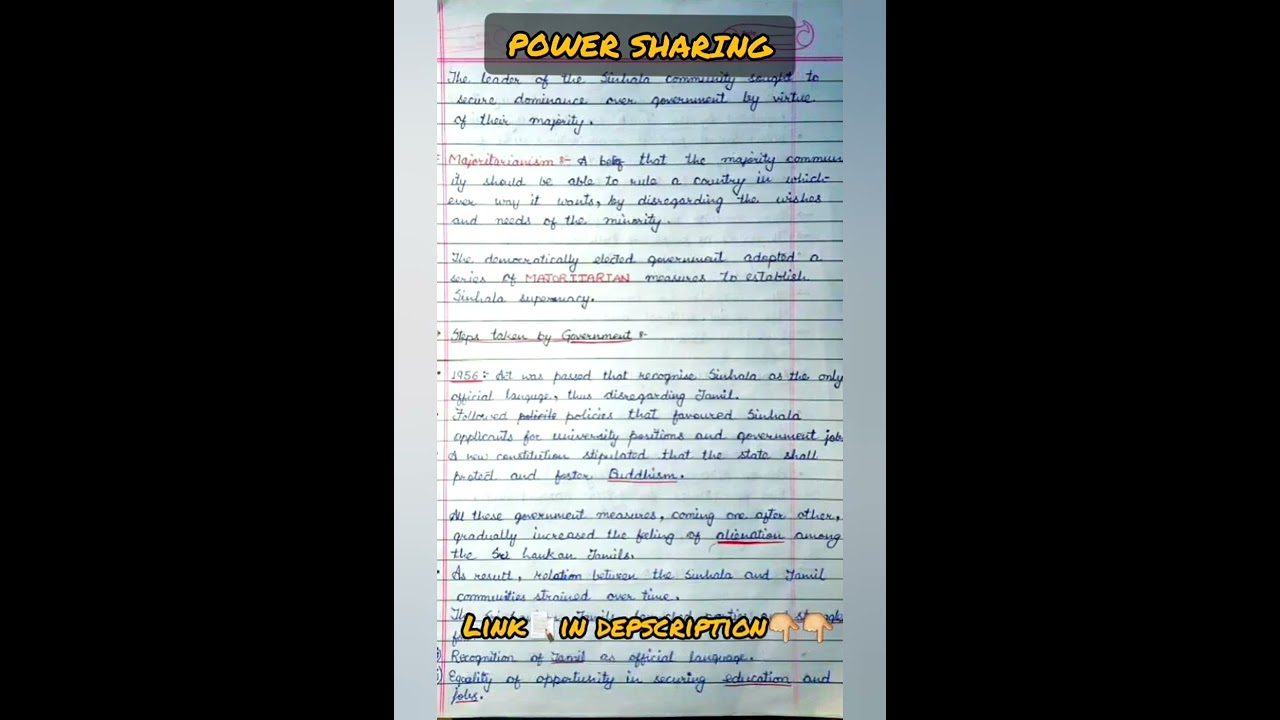 POWER SHARING
The leader of the Sinhala community sought to
secure dominance over government by virtue
of their majority.
Majoritarianism :- A that the majority commun
ity should be able to rule a country in which-
ever way it wants, by disregarding the wishes
and needs of the minority.
The democratically elected government adopted a
series of MAJORITARIAN measures to establish
Sinhala supermacy.
Steps taken by Government :-
1956 :- Act was passed that recognise Sinhala as the only
official languge, thus disregarding Tamil.
Followed policies that favoured Sinhala
applicants for university positions and government job
A new constitution stipulated that the state shall
protect and foster Buddhism.
All these government measures, coming one after other,
gradually increased the feeling of alienation among
the Sri Lankan Tamils.
As result, relation between the Sinhala and Tamil
communities strained over time.
The Tamils parties and
LINK IN DEPSCRIPTION
Recognition of Tamil as official language.
Equality of opportunity in securing education and
jobs.